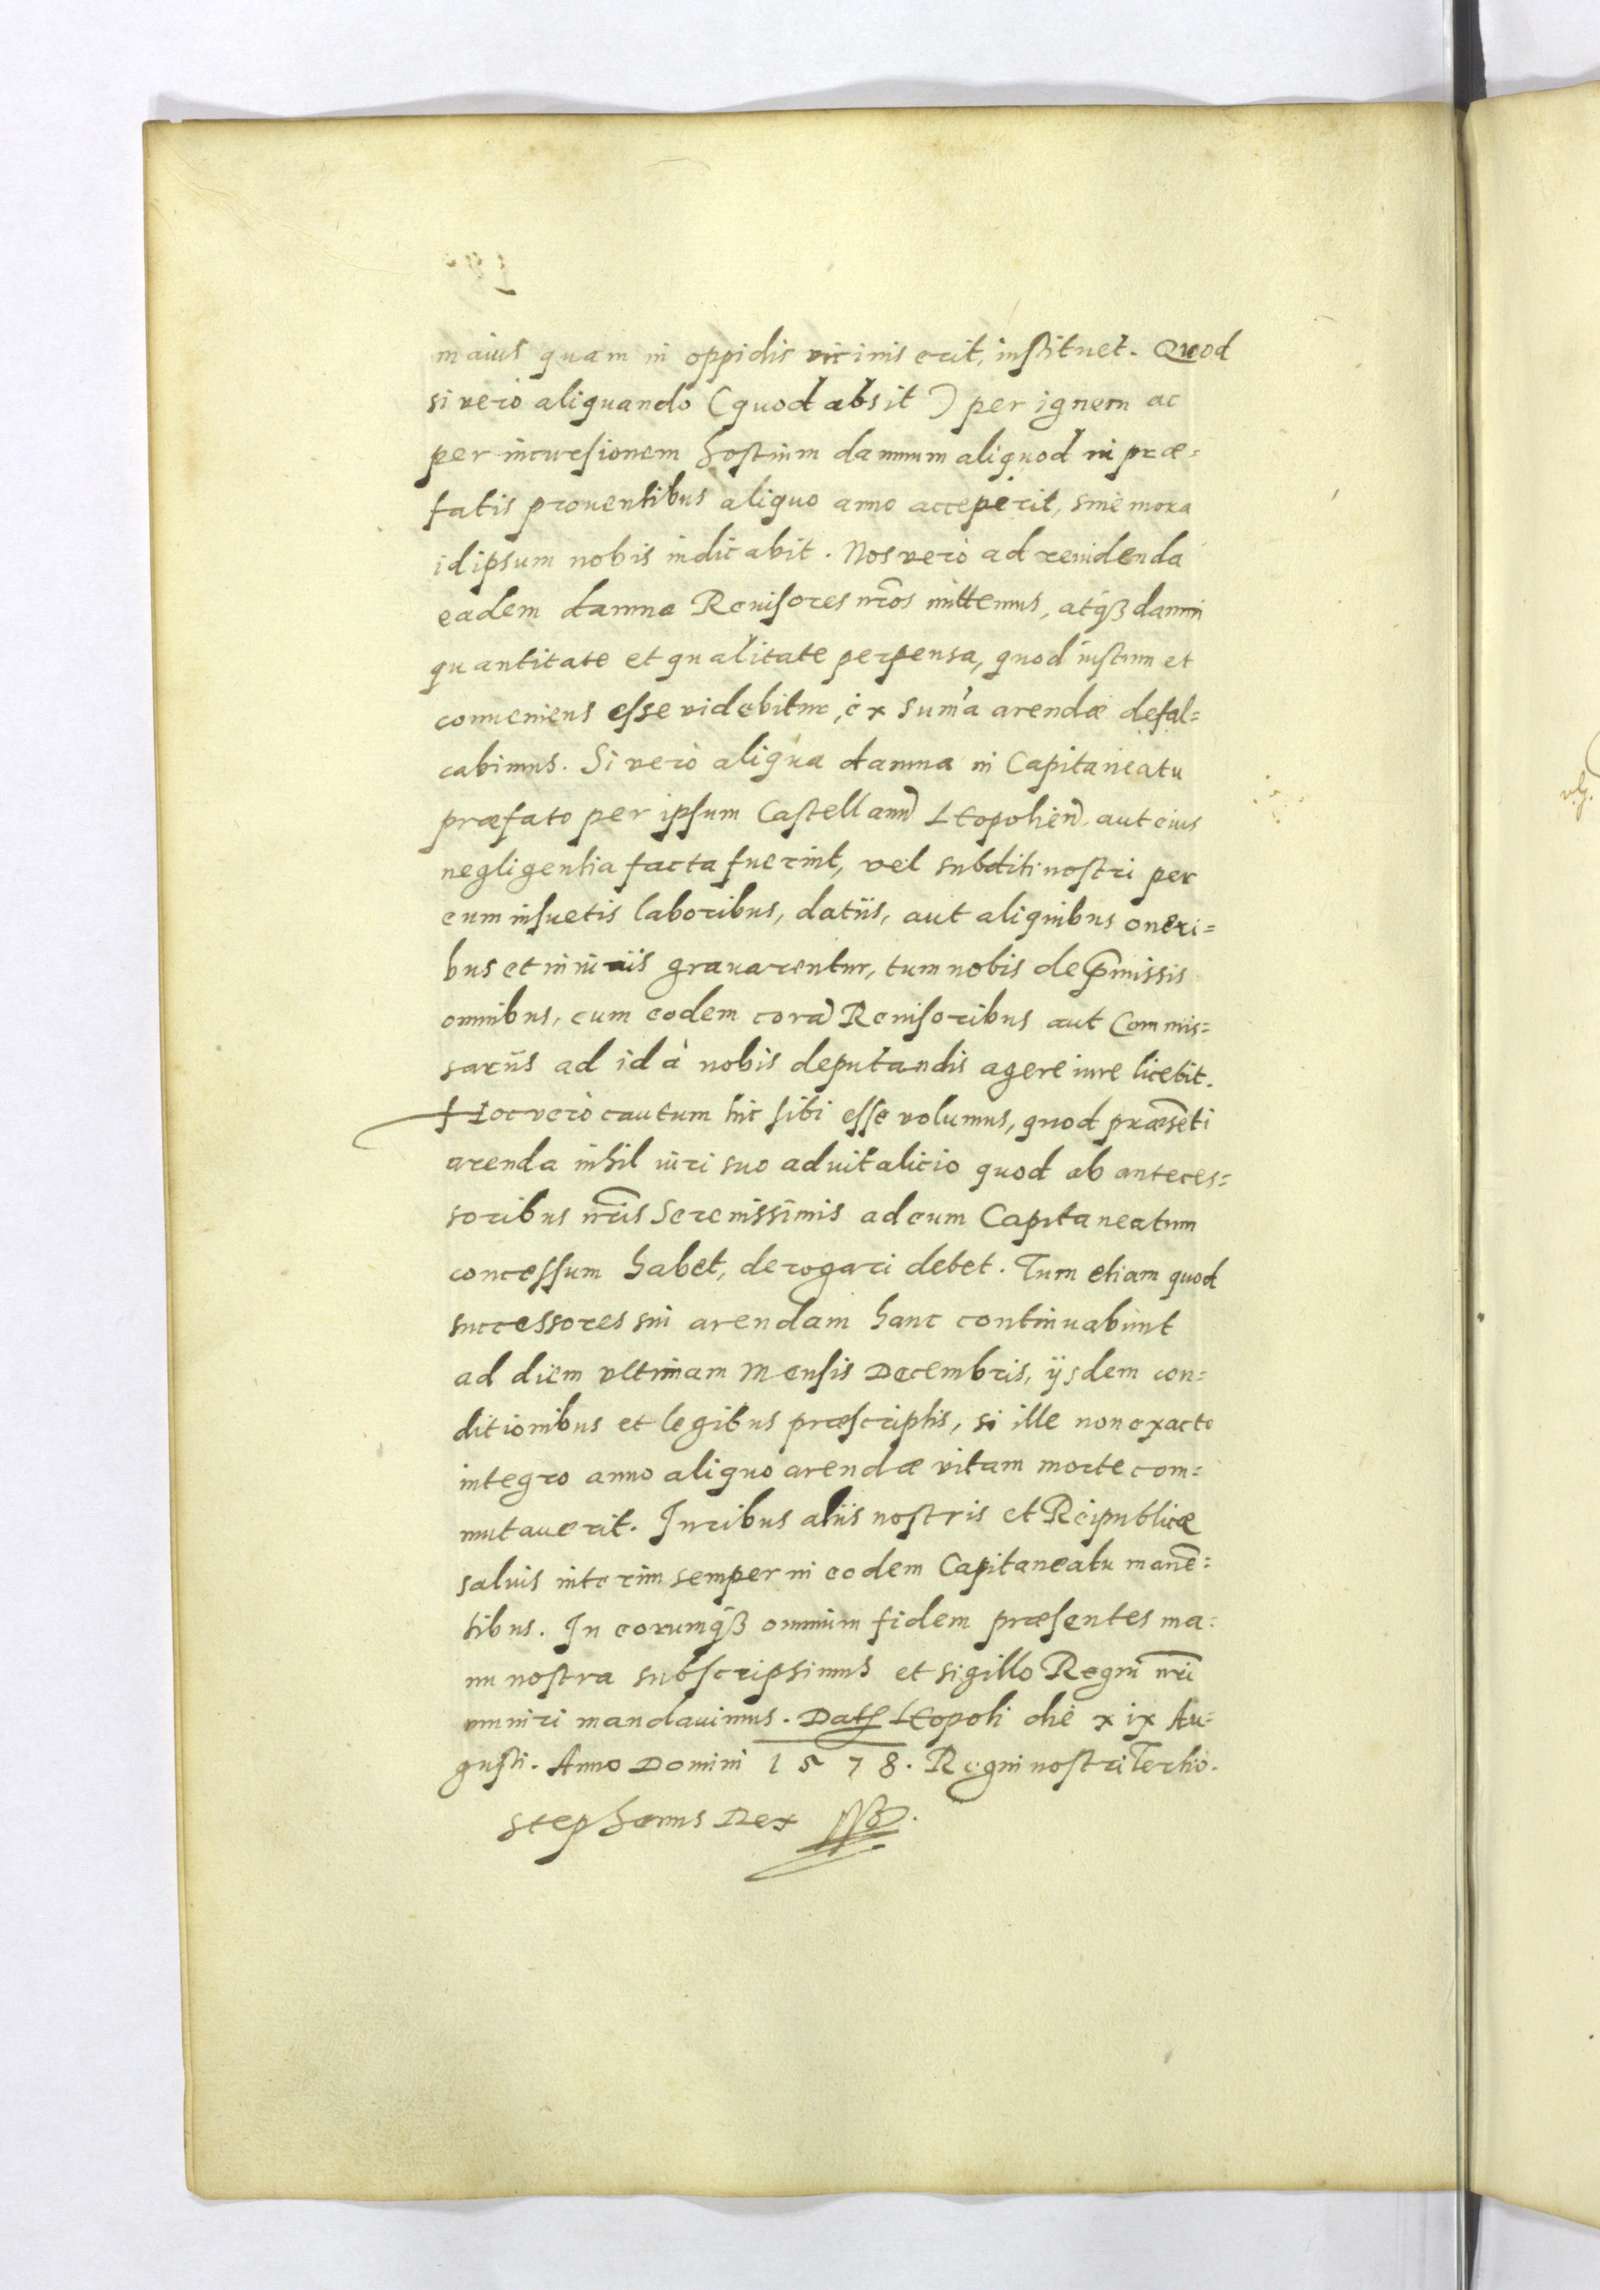 maius quam in oppidis vicinis erit, instituet. Quod
si vero aliquando (quod absit) per ignem ac
per incursionem hostium damnum aliquod in præ=
fatis prouentibus aliquo anno acceperit, sine mora
id ipsum nobis indicabit. Nos vero ad reuidenda
eadem damna Reuisores nr̃os mittemus, atq́ꝫ damni
quantitate et qualitate perpensa, quod iustum et
conueniens esse videbitur, ex sum̃a arendæ defal=
cabimus. Si vero aliqua damna in Capitaneatu
præfato per ipsum Castellanũ Leopolieñ. aut eius
negligentia facta fuerint, vel subditi nostri per
eum insuetis laboribus, datiis, aut aliquibus oneri=
bus et iniuriis grauarentur, tum nobis de p̃missis
omnibus, cum eodem corã Reuisoribus aut Commis=
sariis ad id à nobis deputandis agere iure licebit.
Hoc vero cautum hic sibi esse volumus, quod præsẽti
arenda nihil iuri suo aduitalicio quod ab anteces=
soribus nr̃is Serenissimis ad eum Capitaneatum
concessum habet, derogari debet. Tum etiam quod
successores sui arendam hanc continuabunt
ad diem vltimam Mensis Decembris, ijsdem con=
ditionibus et legibus præscriptis, si ille non exacto
integro anno aliquo arendæ vitam morte com=
mutauerit. Iuribus aliis nostris et Reipublicæ
saluis interim semper in eodem Capitaneatu manẽ=
tibus. In eorumq́ꝫ omnium fidem præsentes ma=
nu nostra subscripsimus et sigillo Regni nr̃i
muniri mandauimus. Dat Leopoli die xix Au=
gusti. Anno Domini 1578. Regni nostri Tertio.
Stephanus Rex